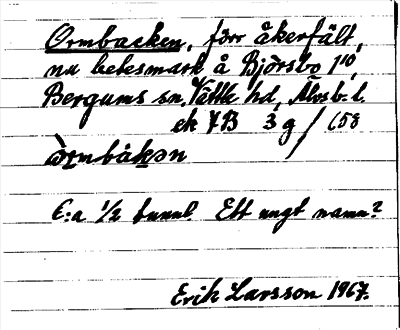 Ormbacken, förr åkerfält,
nu betesmark å Björsbo 1¹⁰,
Bergums sn, Vättle hd, Älvsb. l.
ek 7B 3 g / 658
òrmbåkən
E:a 1/2 tunnl. Ett ungt namn?
Erik Larsson 1967.